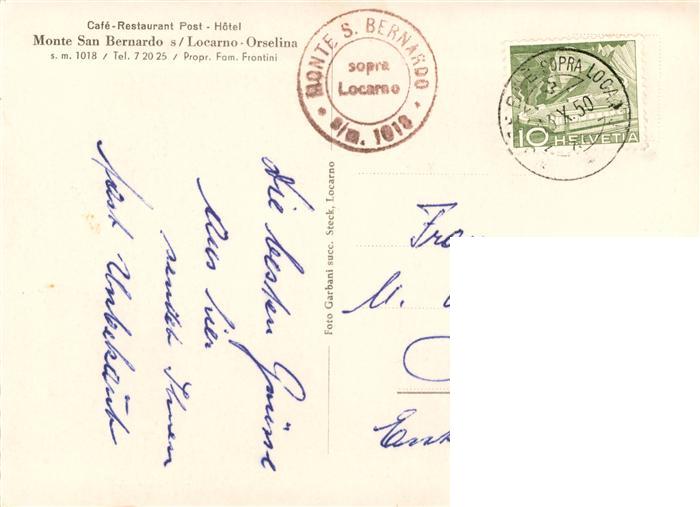 Café-Restaurant Post - Hôtel
Monte San Bernardo s/Locarno-Orselina
s. m. 1018 / Tel. 7 20 25 / Propr. Fam. Frontini
MONTE S. BERNARDO
sopra
Locarno
s/m. 1018
SOPRA LOCA
X.50
10 HELVETIA
Die besten Grüsse
Aus hier
sendet Ihnen
fast Unbekannt
Foto Garbani succ. Steck, Locarno